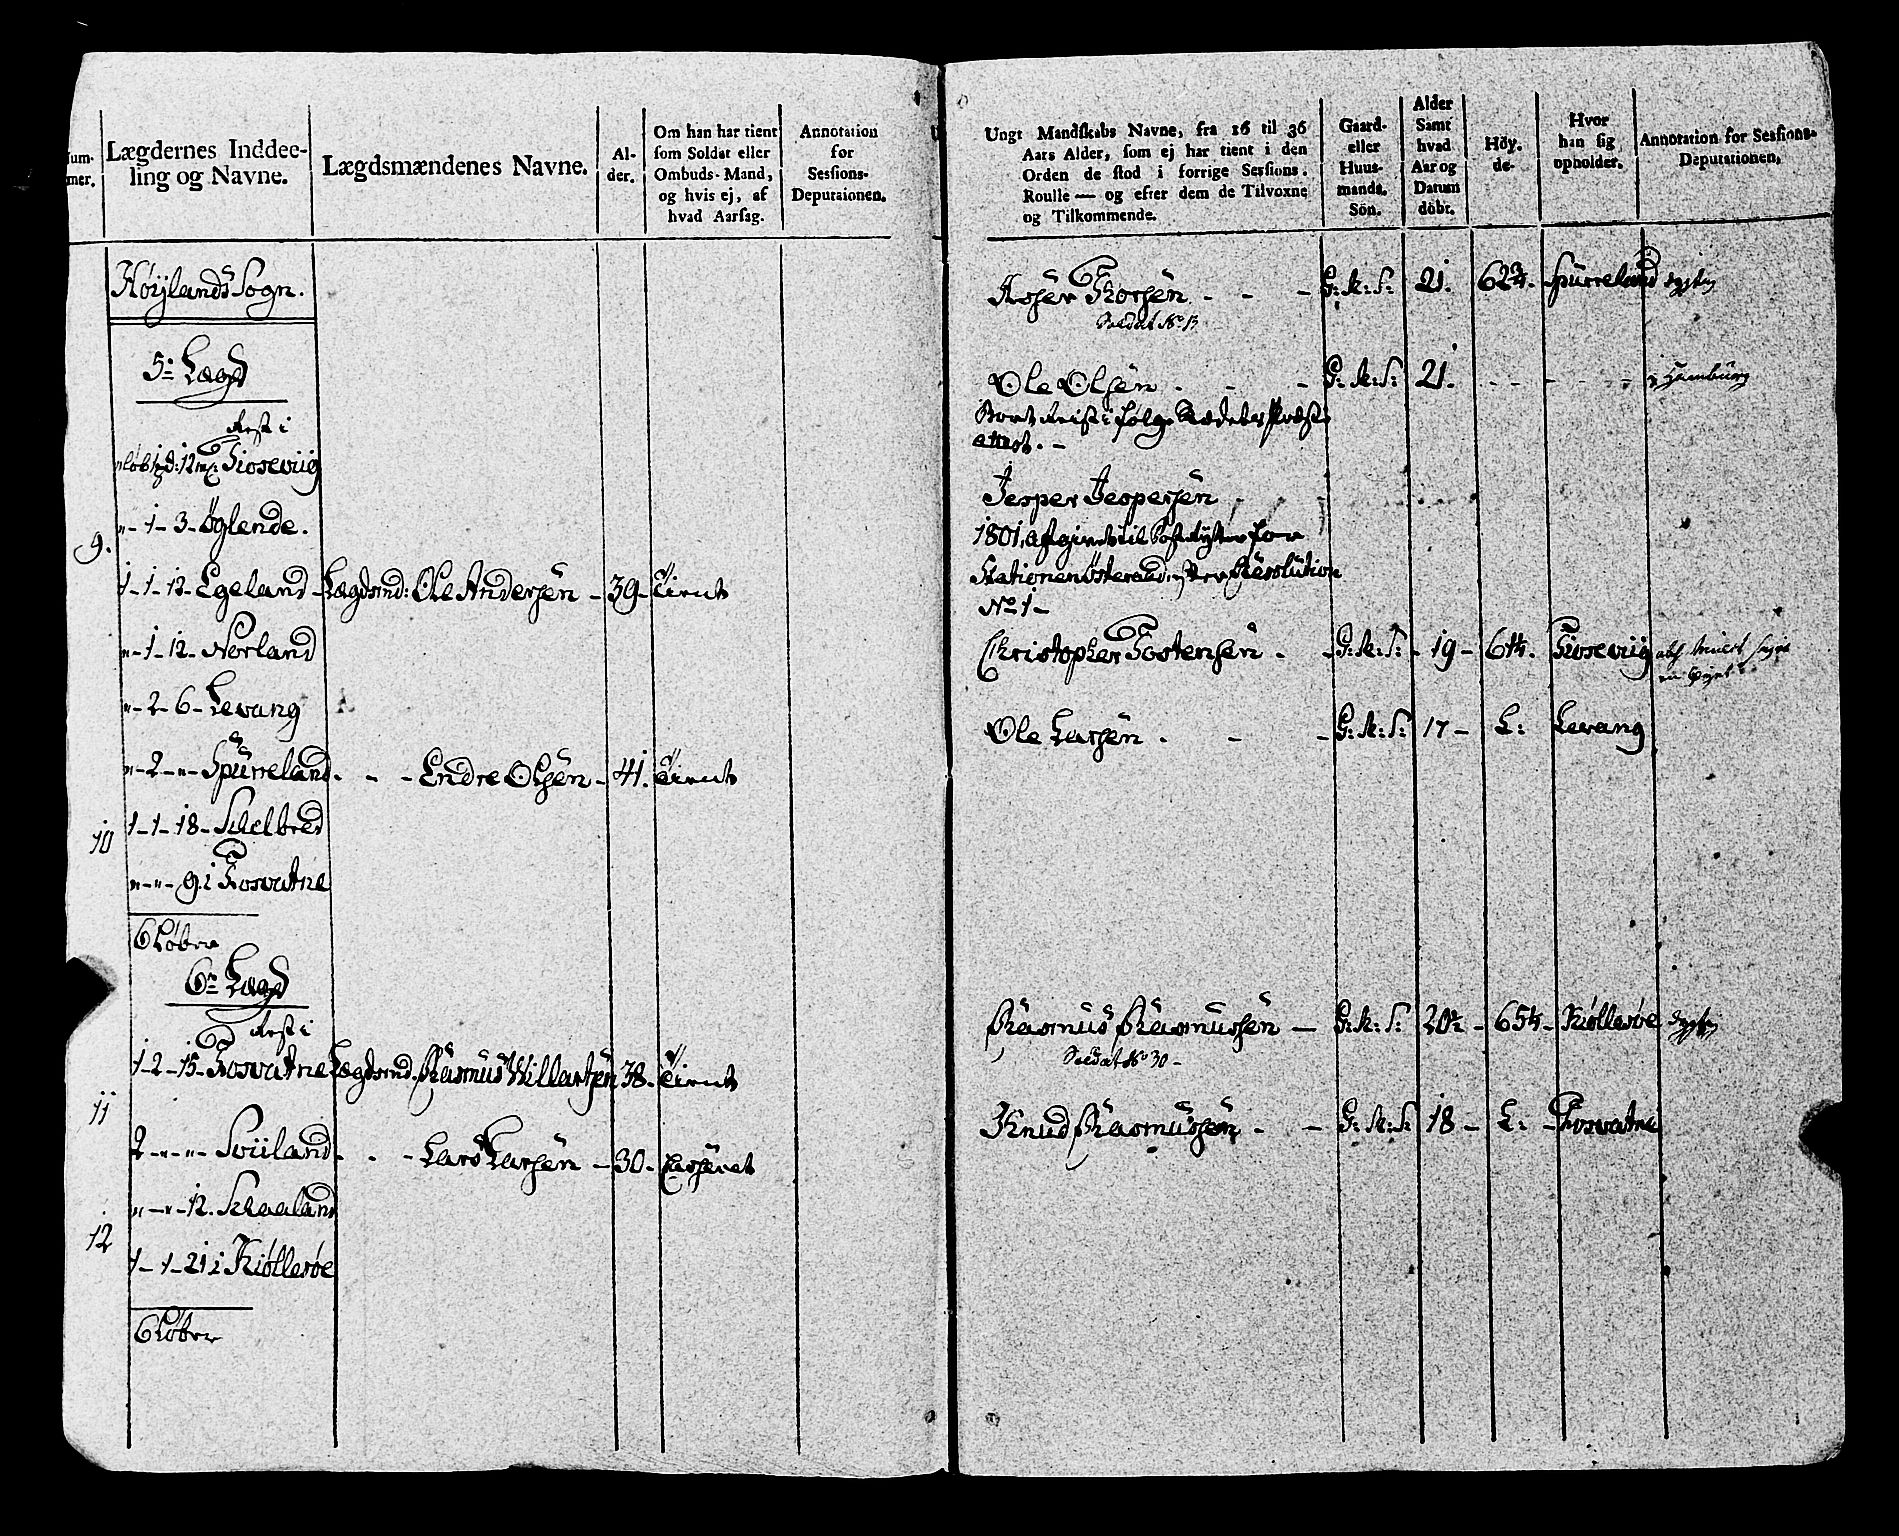 Num-
mer.
Lægdernes Inddee-
ling og Navne.
Lægdsmændenes Navne.
Al-
der.
Om han har tient
som Soldat eller
Ombuds-Mand,
og hvis ej, af
hvad Aarsag.
Annotation
for
Sessions-
Deputaionen.
Høylands Sogn.
5te Lægd
Rest i
Tiosevig
"- 1- 3- Øglende.
9.
1- 1- 12- Egeland - Lægdsmd: Ole Andersen - 39- Tient
"- 1- 12- Norland
"- 2- 6- Levang
"- 2- "- Spurreland - - - Endre Olsen - 41. Tient
10
1- 1- 18- Schelbred
"- "- 9. i Fosvatne
6 Løber
6te Lægd
Rest i
1- 2- 15- Fosvatne Lægdsmd. Rasmus Willartsen 38- Tient
11
2- "- "- Sviland - - - Lars Larsen - 30- Casseret
"- "- 12. Schaaland
12
1- 1- 21 i Kiøllesøe
6 Løber
Ungt Mandskabs Navne, fra 16 til 36
Aars Alder, som ej har tient i den
Orden de stod i forrige Sessions-
Roulle — og efter dem de Tilvoxne
og Tilkommende.
Gaard-
eller
Huus-
mands.
Søn.
Alder
Samt
hvad
Aar og
Datum
döbt.
Höy.
de-
Hvor
han sig
opholder.
Annotation for Sessions-
Deputationen.
Asser Thorsen - - - G: M: S: 21. 62¾. Spurreland dygtig
Soldat No 13
Ole Olsen - - - G: M: S: 21. - - - - - - i Hamburg
Bortreist i følge Stædets Præste
attest. -
Jesper Jespersen
1801, afgivet til
Stationen Østeraad, Resolution
No 1-
Christopher Tostensen - - G: M: S: - 19 - 64¼. Tiosevig
Ole Larsen - - - G: M: S: 17 - L: Levang
Rasmus Rasmussen - G: M: S: 20½ - 65¼ - Kiøllesøe dygtig
Soldat No 30 -
Knud Rasmussen - - G: M: S: 18 - L: - Fosvatne